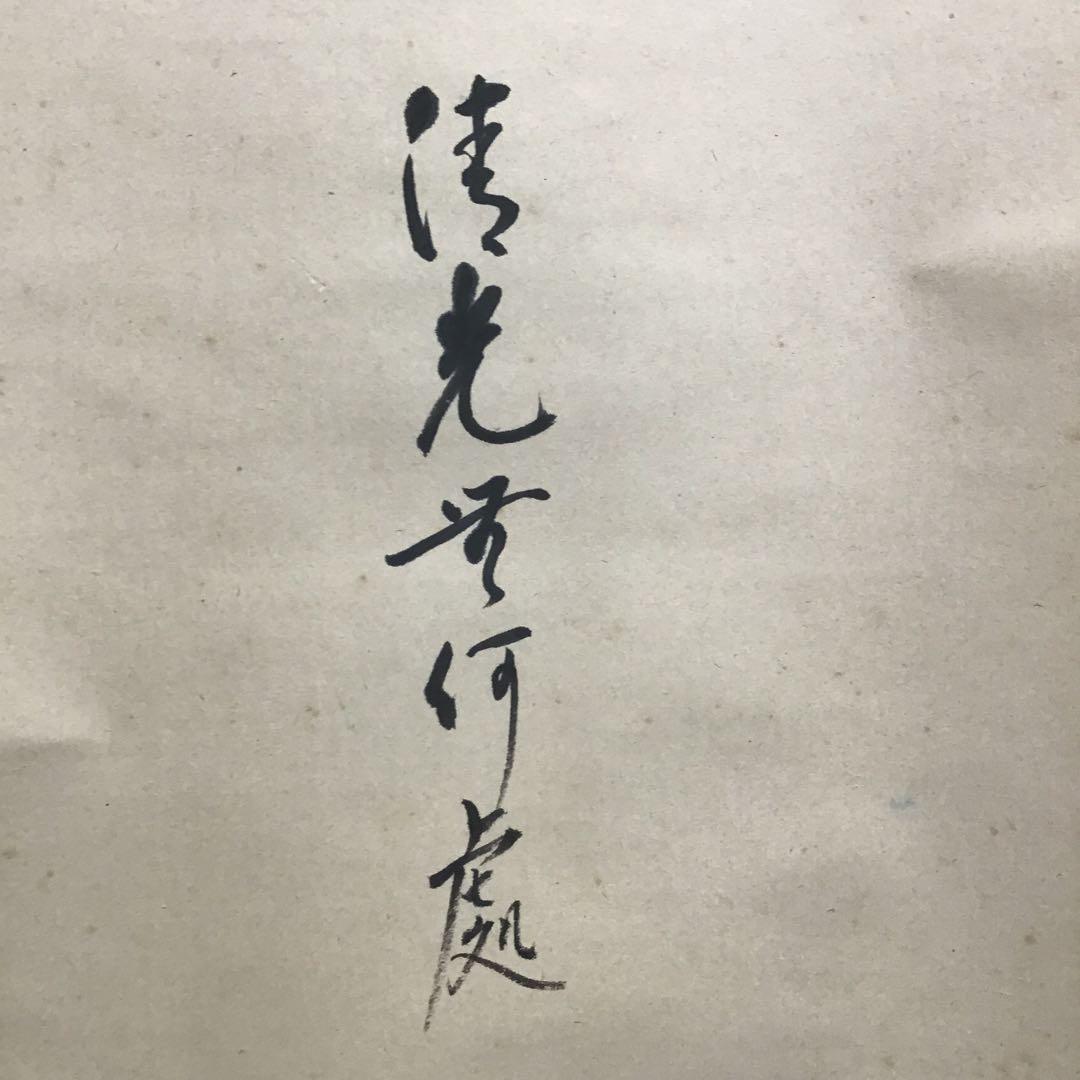 清光无何處